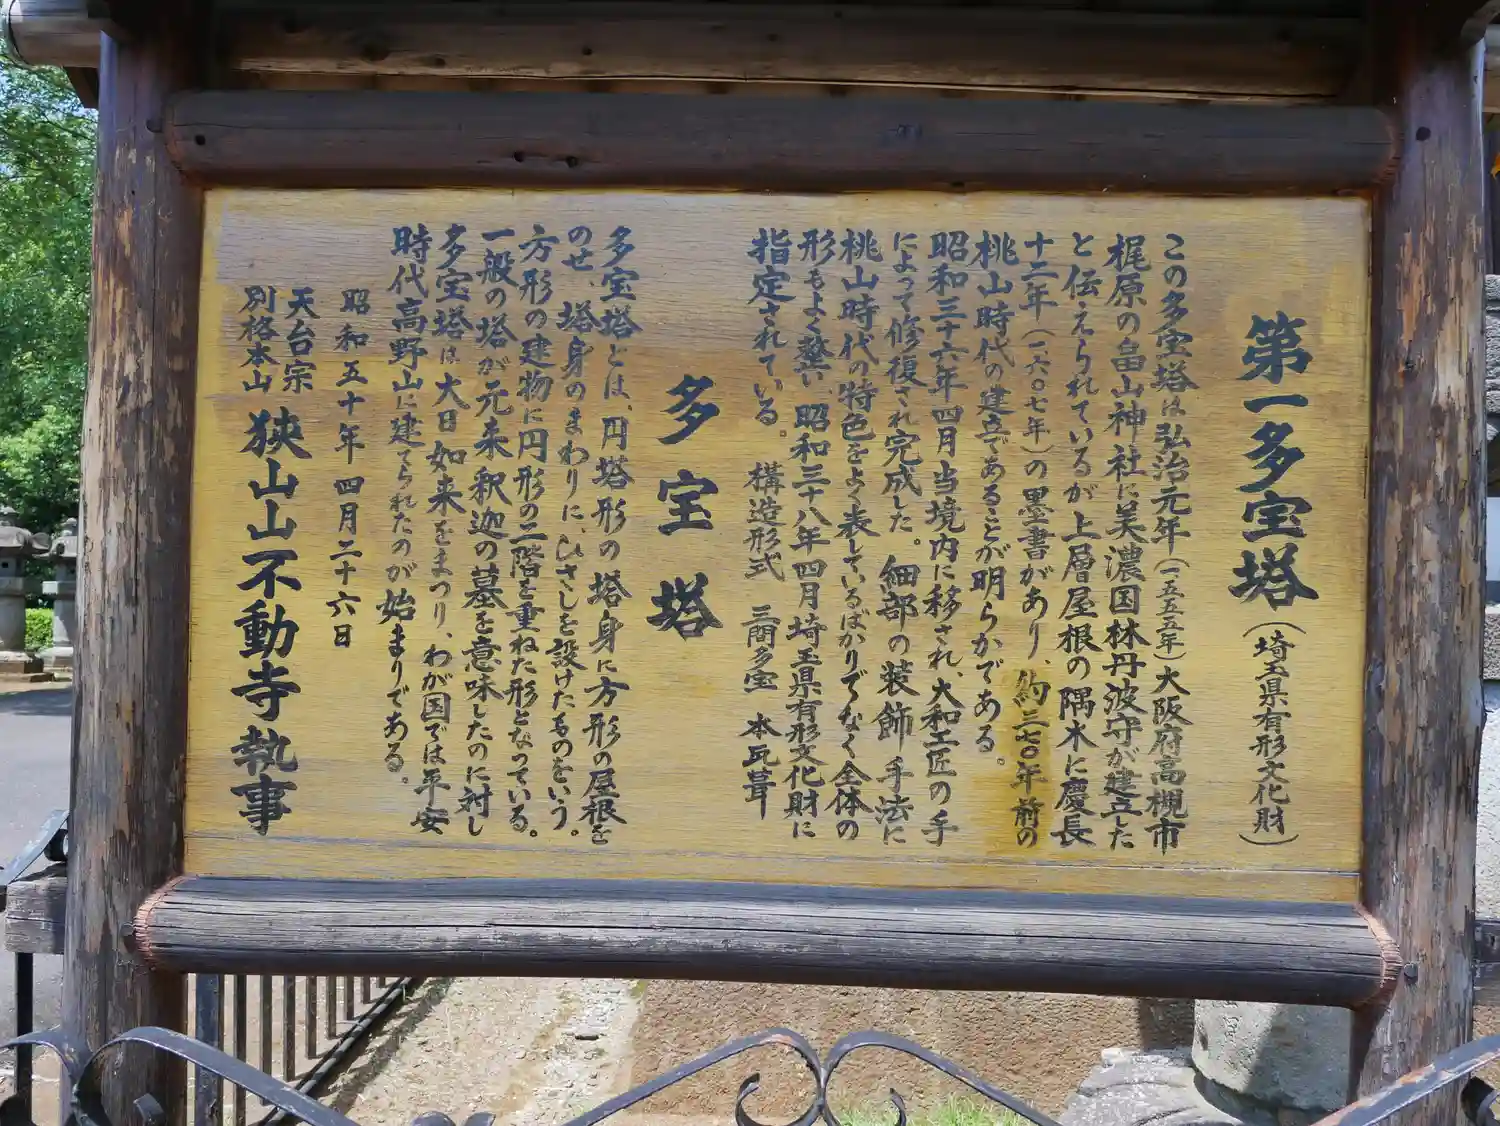 第一多宝塔（埼玉県有形文化財）
この多宝塔は弘治元年（一五五五年）大阪府高槻市
梶原の畠山神社に美濃国林丹波守が建立した
と伝えられているが上層屋根の隅木に慶長
十二年（一六〇七年）の墨書があり、約三七〇年前の
桃山時代の建立であることが明らかである。
昭和三十六年四月当境内に移され、大和工匠の手
によって修復され完成した。細部の装飾手法に
桃山時代の特色をよく表しているばかりでなく全体の
形もよく整い昭和三十八年四月埼玉県有形文化財に
指定されている。構造形式 三間多宝 本瓦葺
多宝塔
多宝塔とは、円塔形の塔身に方形の屋根を
のせ、塔身のまわりに、ひさしを設けたものをいう。
方形の建物に円形の二階を重ねた形となっている。
一般の塔が元来釈迦の墓を意味したのに対し
多宝塔は大日如来をまつり、わが国では平安
時代高野山に建てられたのが始まりである。
昭和五十年四月二十六日
天台宗
別格本山 狭山山不動寺執事